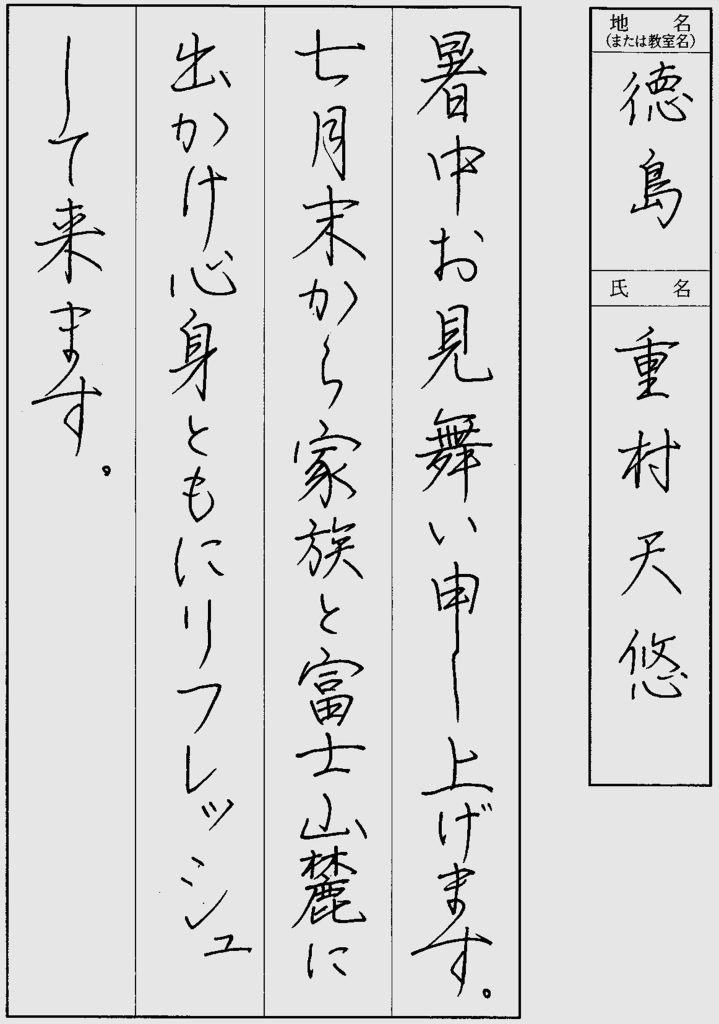 地名
(または教室名)
徳島
氏名
重村天悠
暑中お見舞い申し上げます。
七月末から家族と富士山麓に
出かけ心身ともにリフレッシュ
して来ます。